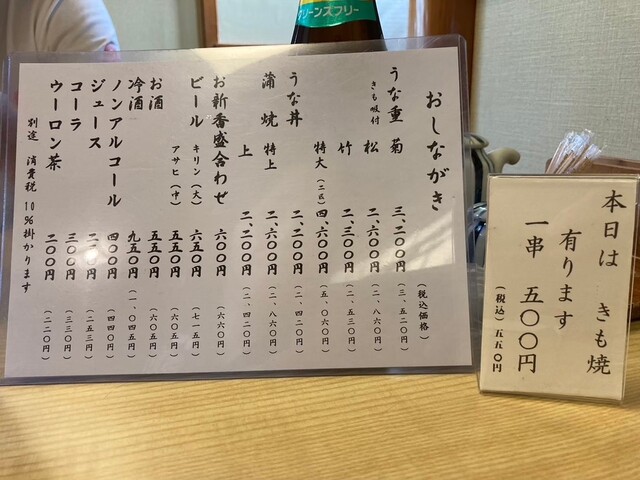 リーンズフリー
おしながき (税込価格)
うな重 菊 三、二〇〇円 (三、五二〇円)
きも吸付 松 二、六〇〇円 (二、八六〇円)
竹 二、三〇〇円 (二、五三〇円)
特大(二匹) 四、六〇〇円 (五、〇六〇円)
うな丼 二、二〇〇円 (二、四二〇円)
蒲焼 特上 二、六〇〇円 (二、八六〇円)
上 二、二〇〇円 (二、四二〇円)
お新香盛合わせ 六〇〇円 (六六〇円)
ビール キリン(大) 六五〇円 (七一五円)
アサヒ(中) 五五〇円 (六〇五円)
お酒 五五〇円 (六〇五円)
冷酒 九五〇円 (一、〇四五円)
ノンアルコール 四〇〇円 (四四〇円)
ジュース 二三〇円 (二五三円)
コーラ 三〇〇円 (三三〇円)
ウーロン茶 二〇〇円 (二二〇円)
別途 消費税 10%掛かります
本日は きも焼
有ります
一串 五〇〇円
(税込) 五五〇円